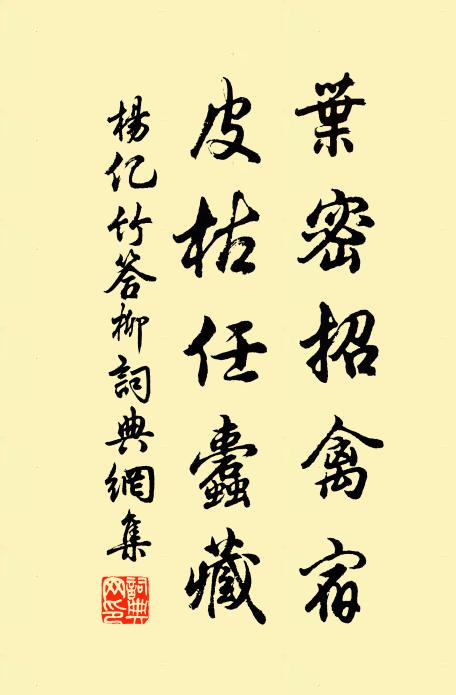 葉密招禽宿
皮枯任蠹藏
楊亿竹答柳詞典網集
詞典網印